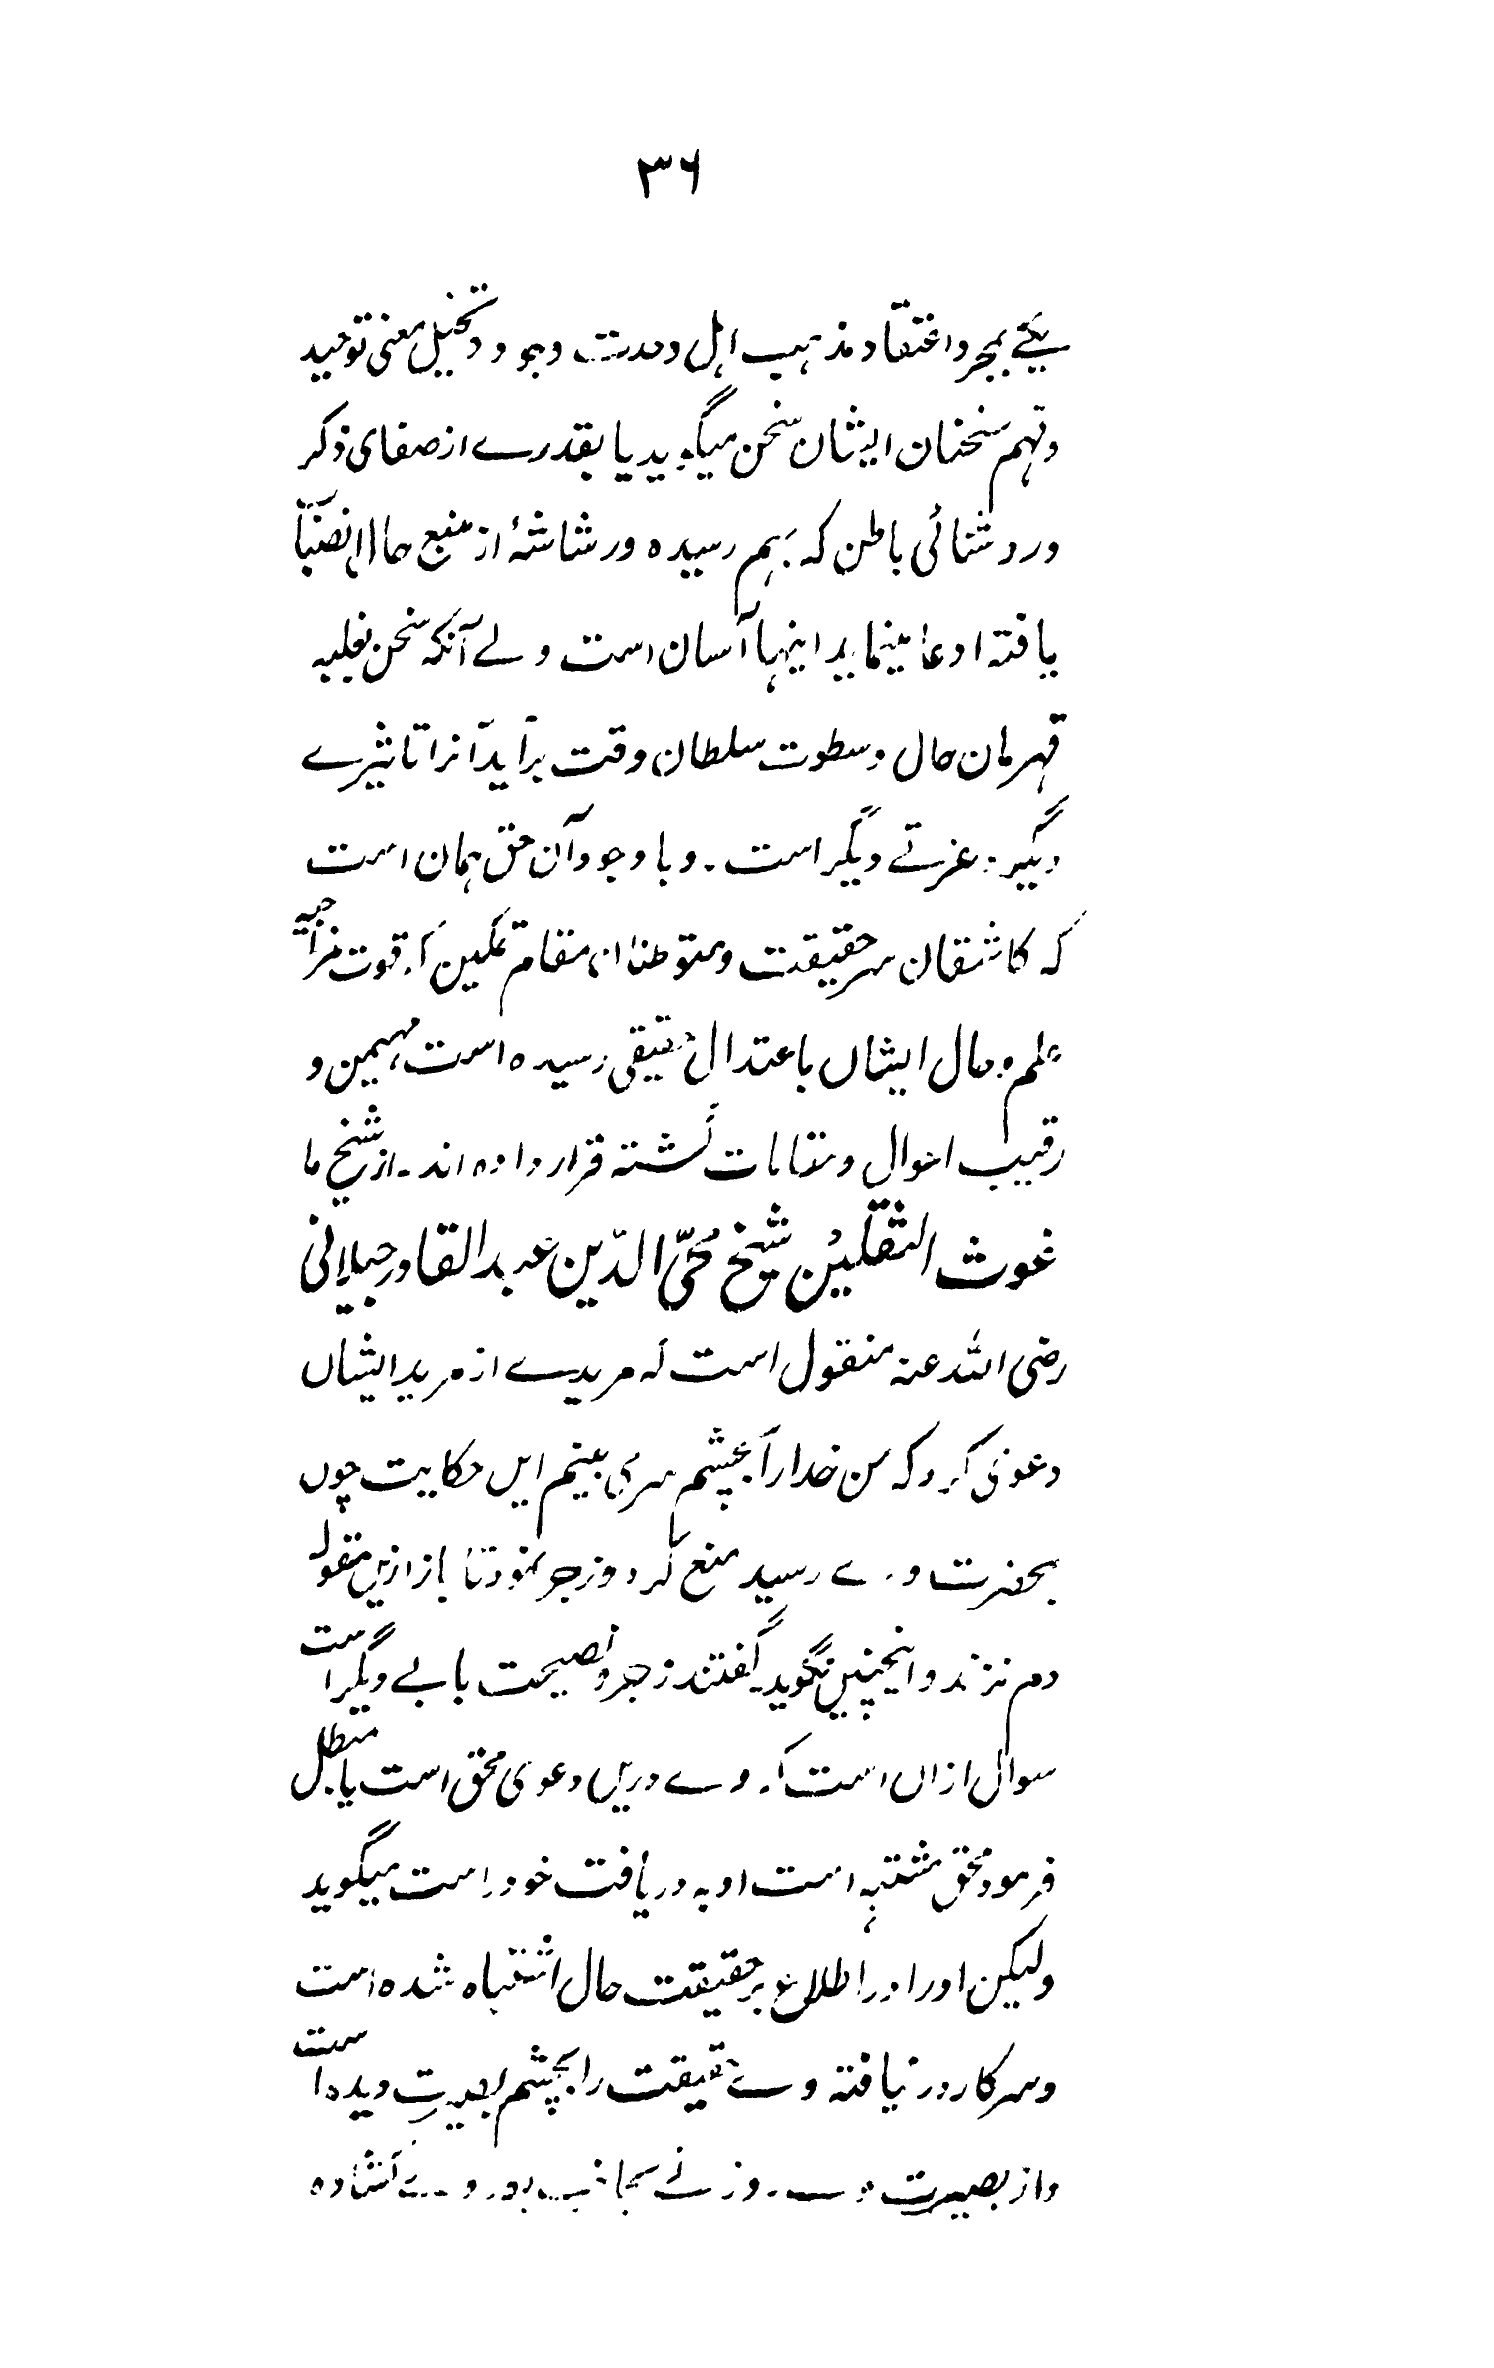 ۳۶
یکے بمجرد اعتقاد مذہب اہل وحدت وجود و تخیل معنی توحید
و فہم سخنان ایشان سخن میگوید یا بقدرے از صفای ذکر
و روشنائی باطن کہ بہم رسیدہ و رشاشۂ از منبع حال انصباب
یافتہ ادعا مینماید اینہا آسان است ولے آنکہ سخن بغلبہ
قہرمان حال و سطوت سلطان وقت برآید آنرا تاثیرے
دیگر و عزتے دیگر است ۔ و باوجود آن حق ہمان است
کہ کاشفان سر حقیقت و متوطنان مقام تمکین کہ قوت مزاجیہ
علم و حال ایشاں باعتدال حقیقی رسیدہ است مہیمن و
رقیب احوال و مقامات گشتہ قرار دادہ اند ۔ از شیخ ما
غوث الثقلین شیخ محی الدّین عبد القادر جیلانی
رضی اللہ عنہ منقول است کہ مریدے از مرید ایشاں
دعوی کرد کہ من خدا را بچشم سر می بینم ایں حکایت چوں
بحضرت وے رسید منع کرد و زجر نمود تا باز ازیں مقولہ
دم نزند و اینچنیں نگوید ۔ گفتند زجر و نصیحت بابے دیگر است
سوال ازاں است کہ وے دریں دعوی محق است یا مبطل
فرمود محق مشتبہ است او بہ دریافت خود راست میگوید
ولیکن او را در اطلاع بر حقیقت حال اشتباہ شدہ است
و سر کار در نیافتہ وے حقیقت را بچشم بصیرت دیدہ است
و از بصیرت وے روزنے بجانب بصر وے کشادہ